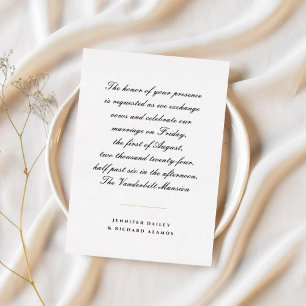 The honor of your presence
is requested as we exchange
vows and celebrate our
marriage on Friday,
the first of August,
two thousand twenty-four,
half past six in the afternoon,
The Vanderbilt Mansion
JENNIFER DAILEY
& RICHARD ALAMOS